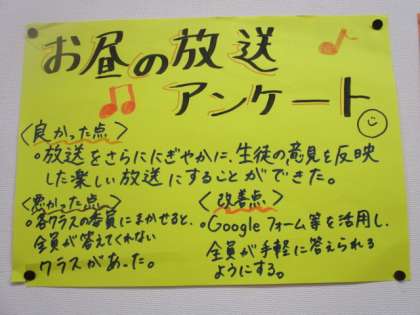 お昼の放送
アンケート
〈良かった点〉
。放送をさらににぎやかに、生徒の意見を反映
した楽しい放送にすることができた。
〈悪かった点〉
。各クラスの委員にまかせると、
全員が答えてくれない
クラスがあった。
〈改善点〉
。Googleフォーム等を活用し、
全員が手軽に答えられる
ようにする。